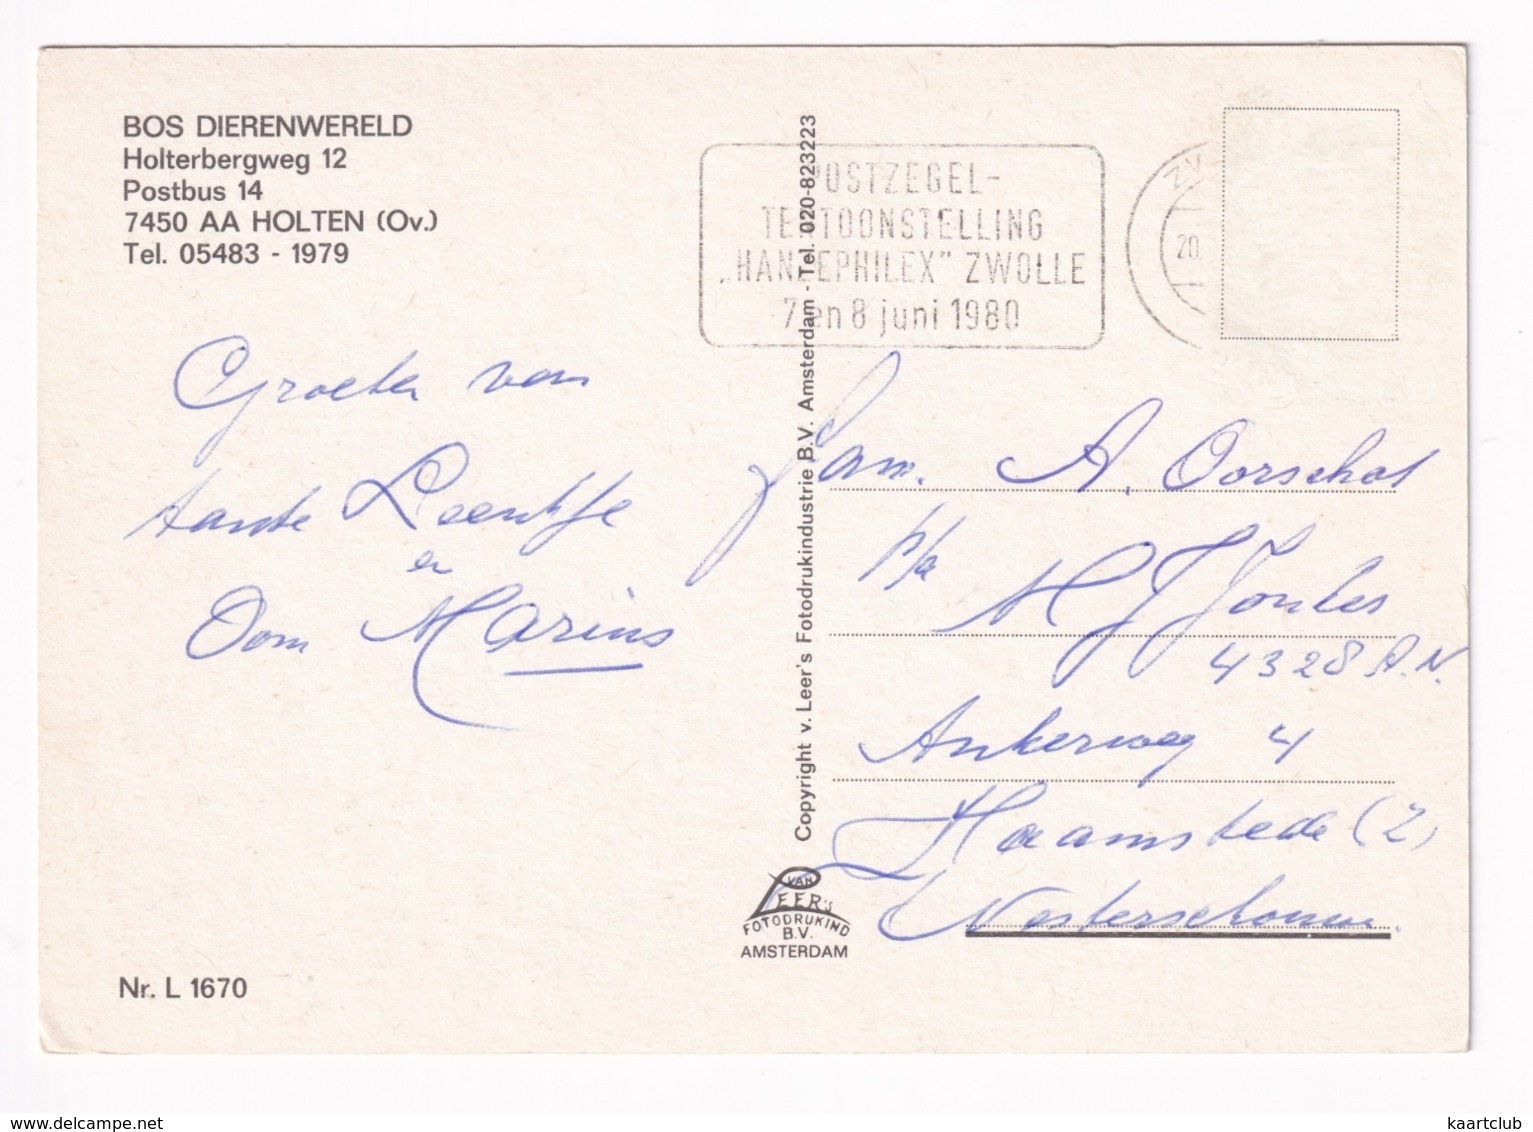 BOS DIERENWERELD
Holterbergweg 12
Postbus 14
7450 AA HOLTEN (Ov.)
Tel. 05483 - 1979
POSTZEGEL-
TENTOONSTELLING
„HANZEPHILEX" ZWOLLE
7 en 8 juni 1980
ZW
20.
Groeten van
tante Leentje
en
Oom Marius
Copyright v. Leer's Fotodrukindustrie B.V. Amsterdam - Tel. 020-823223
Fam. A. Oorschot
p/a
M J Jonkes
4328 A.N.
Ankerweg 4
Haamstede (Z)
Westerschouwen.
VAN
LEER'S
FOTODRUKIND
B.V.
AMSTERDAM
Nr. L 1670
delcampe.net
kaartclub